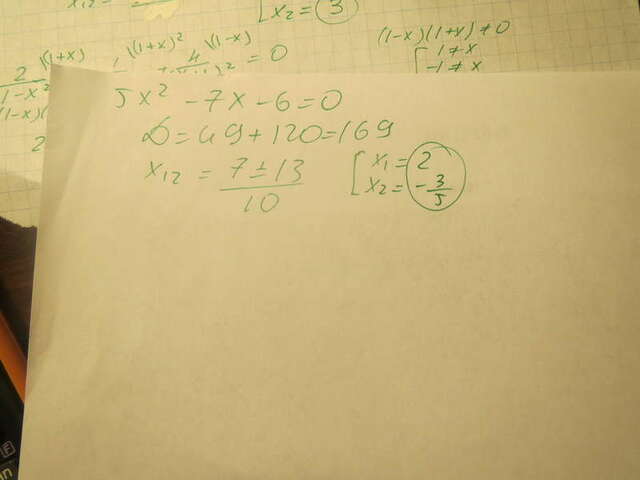 x₂ = 3
(1+x) (1+x)² 4 (1-x) = 0
(1-x)(1+x) ≠ 0
1 ≠ x
-1 ≠ x
2
1-x²
2
5x² - 7x - 6 = 0
D = 49 + 120 = 169
x₁₂ = 7 ± 13 / 10
[ x₁ = 2
x₂ = - 3/5